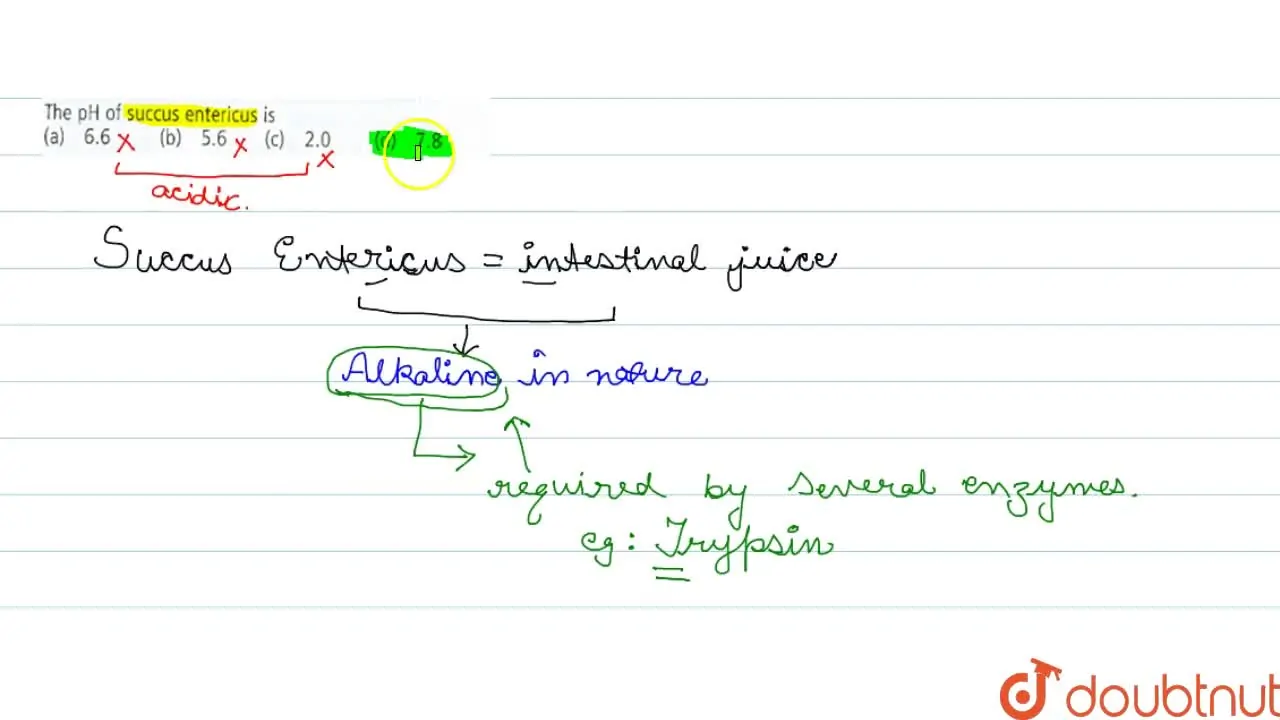 The pH of succus entericus is
(a) 6.6 x (b) 5.6 x (c) 2.0 x (d) 7.8
acidic.
Succus Entericus = intestinal juice
Alkaline in nature
required by several enzymes.
eg: Trypsin
doubtnut